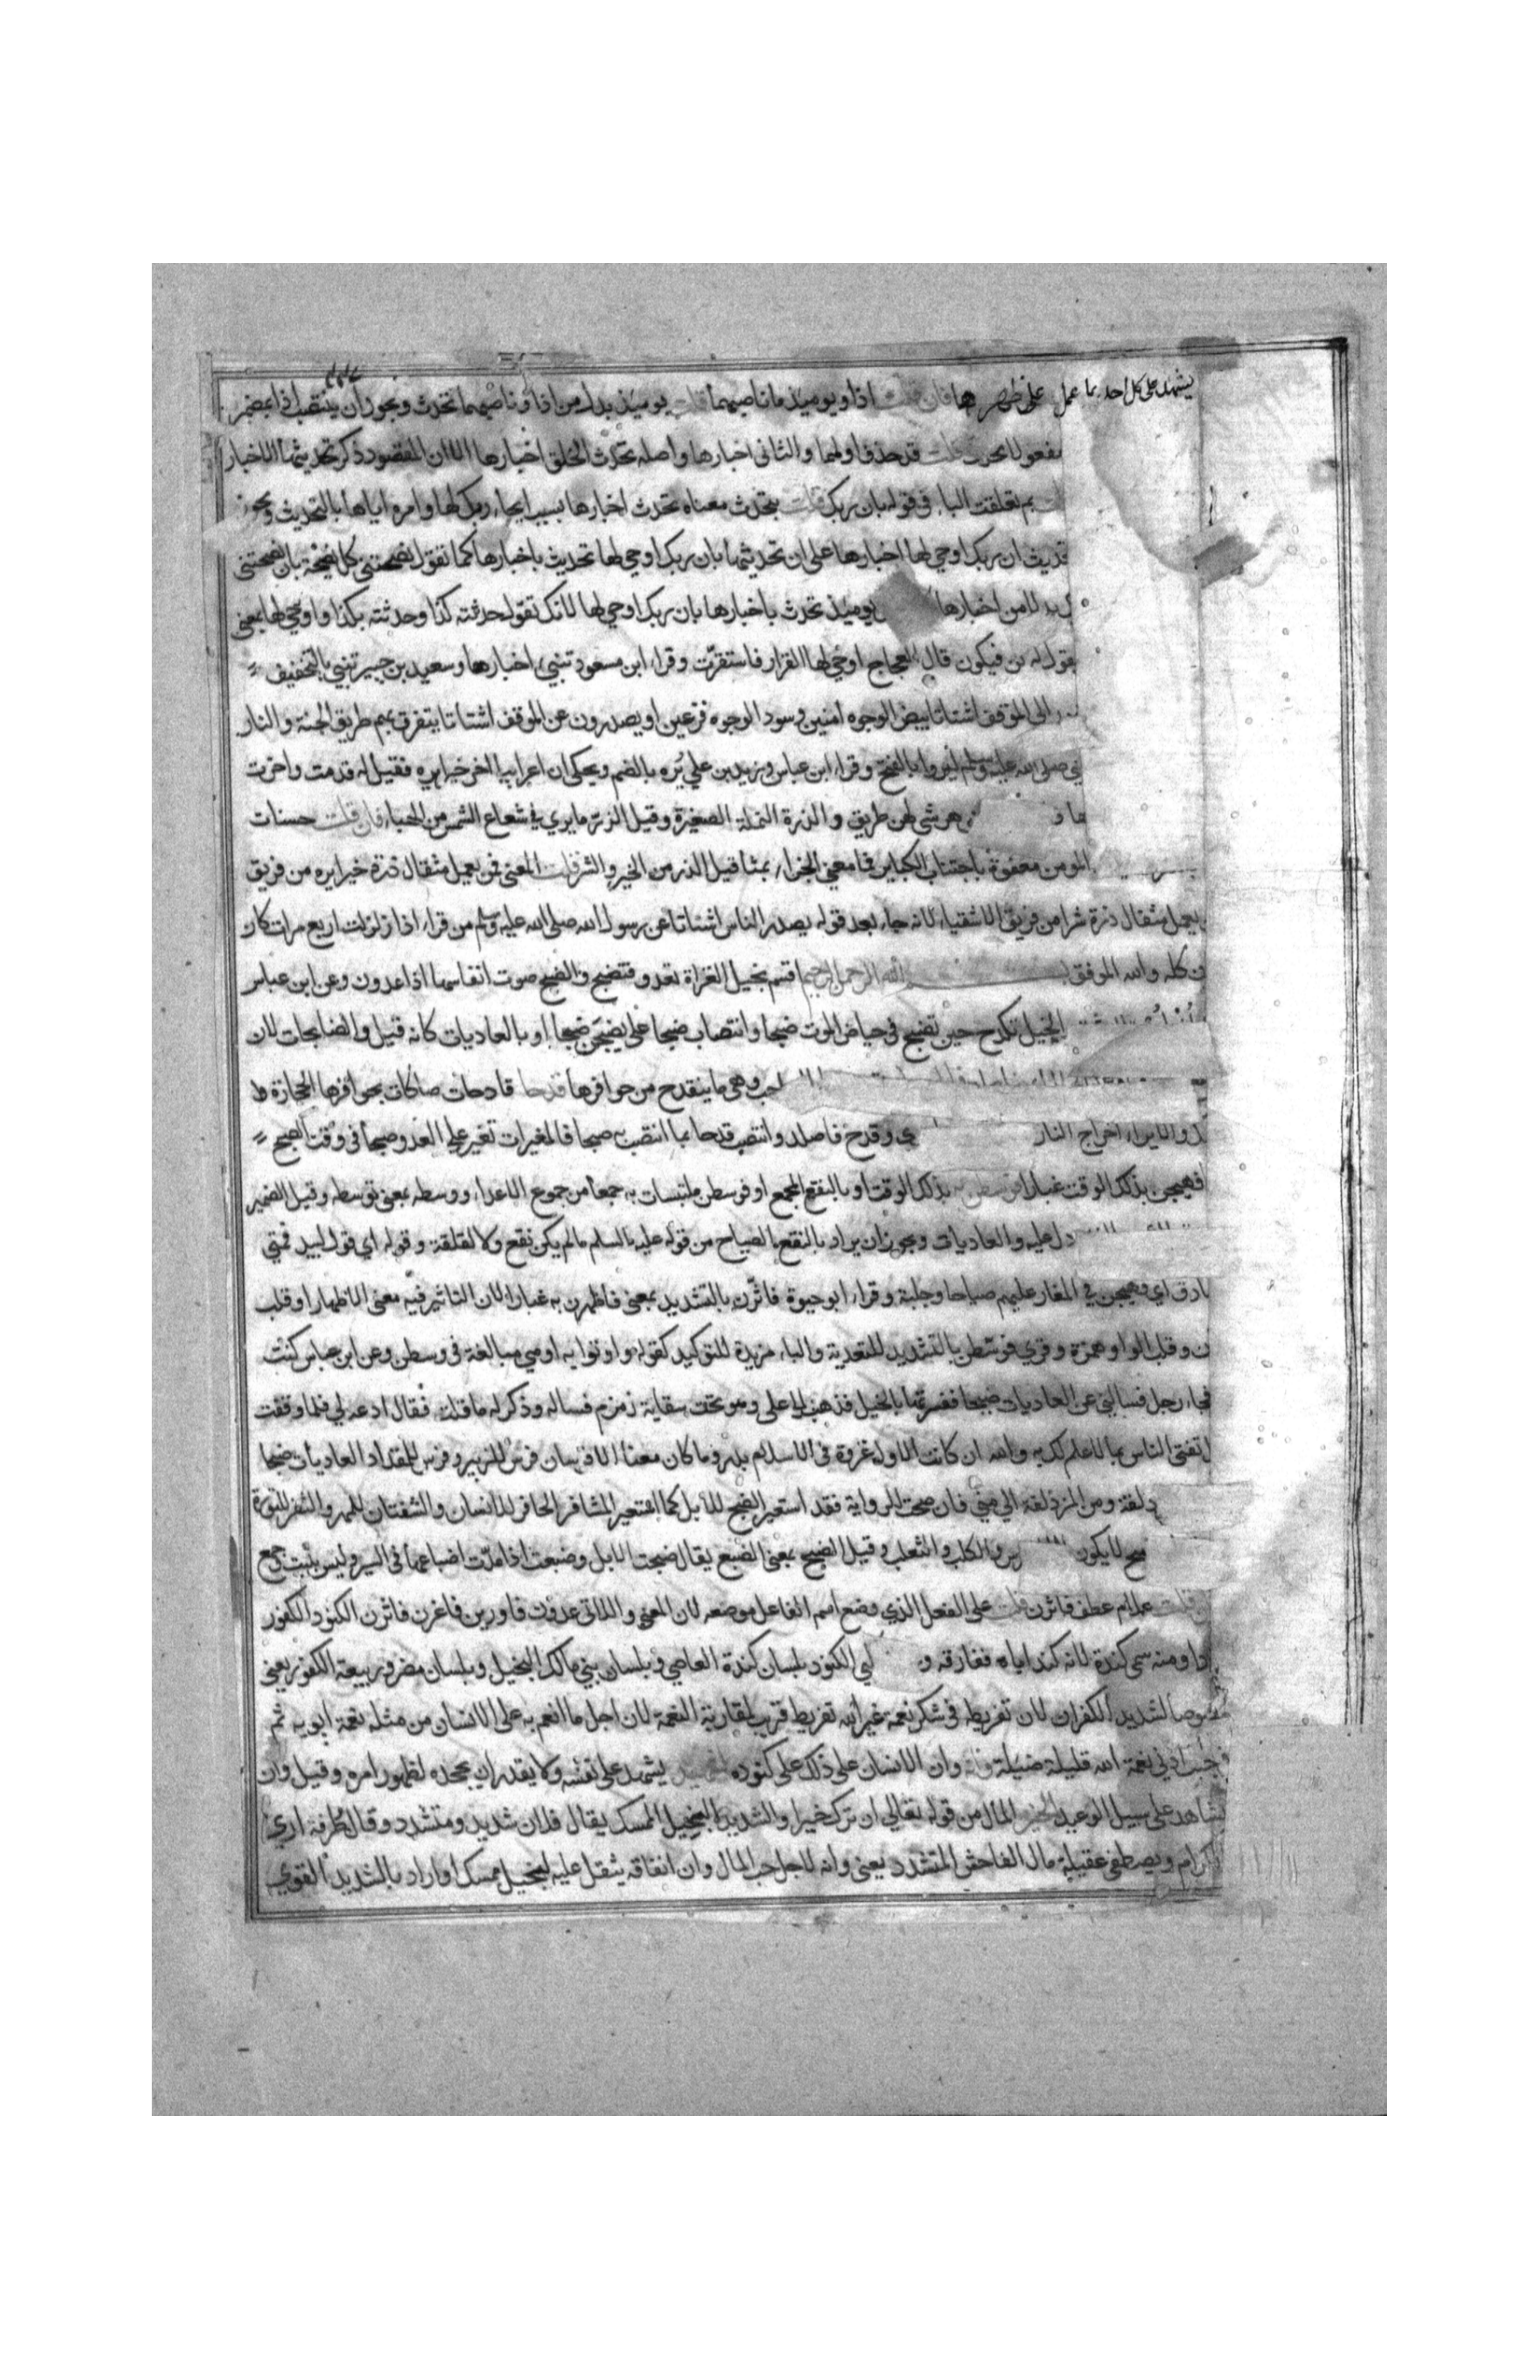 يشهد على كل احد بما عمل على ظهرها فان قلت اذا ويوميذ ما ناصبهما قلت يوميذ بدل من اذا وناصبهما تحدث ويجوز ان ينتصب اذا بمضمر
مفعولا تحدث قلت قد حذف اولهما والثانى اخبارها واصله تحدث الخلق اخبارها الا ان المقصود ذكر تحديثها الاخبار
بم تعلقت الباء فى قوله بان ربك قلت بتحدث معناه تحدث اخبارها بسبب ايحاء ربك لها وامره اياها بالتحديث ويجوز
بان ربك اوحي لها اخبارها على ان تحديثها بان ربك اوحي لها تحديث باخبارها كما تقول نصحتنى كل نصيحة بان نصحتنى
بدلا من اخبارها يوميذ تحدث باخبارها بان ربك اوحي لها لانك تقول حدثته كذا وحدثته بكذا واوحي لها بمعنى
فيكون قال العجاج اوحي لها القرار فاستقرّت وقراء ابن مسعود تنبيء اخبارها وسعيد بن جبير تنبي بالتخفيف
الى الموقف اشتاتا بيض الوجوه امنين وسود الوجوه فزعين او يصدرون عن الموقف اشتاتا يتفرق بهم طريق الجنة والنار
صلى الله عليه وسلم ليروا بالفتح وقراء ابن عباس وزيد بن علي يُره بالضم ويحكى ان اعرابيا اخر خيرا يره فقيل له قدمت واخرت
هرشى لهن طريق والذرة النملة الصغيرة وقيل الذر ما يري في شعاع الشمس من الهباء فان قلت حسنات
المومن معفوة باجتناب الكباير فما معنى الجزاء بمثاقيل الذر من الخير والشر قلت المعنى فمن يعمل مثقال ذرة خيرا يره من فريق
يعمل مثقال ذرة شرا من فريق الاشقياء لانه جاء بعد قوله يصدر الناس اشتاتا عن رسول الله صلى الله عليه وسلم من قراء اذا زلزلت اربع مرات كان
كله والله الموفق بسم الله الرحمن الرحيم اقسم بخيل الغزاة تعدو فتضبح والضبح صوت انفاسها اذا عدون وعن ابن عباس
الخيل تكدح حين تضبح فى حياض الموت ضبحا وانتصاب ضبحا على يضبحن ضبحا او بالعاديات كانه قيل والضابحات لان
وهى ما ينقدح من حوافرها قدحا قادحات صاكات بحوافرها الحجارة
والايراء اخراج النار وقدح فاصلد وانتصب قدحا بما انتصب به صبحا فالمغيرات تغير على العدو صبحا فى وقت الصبح
فهيجن بذلك الوقت غبارا فوسطن به بذلك الوقت او بالنقع الجمع او فوسطن ملتبسات به جمعا من جموع الاعداء ووسطه بمعنى توسطه وقيل الضمير
دل عليه والعاديات ويجوز ان يراد بالنقع الصياح من قوله عليه السلم ما لم يكن نقع ولا لقلقة وقوله اي قول لبيد فمتى
اي هيجن في المغار عليهم صياحا وجلبة وقراء ابو حيوة فاثّرن بالتشديد بمعنى فاظهرن به غبارا لان التاثير فيه معنى الاظهار او قلب
وقلب الواو همزة وقري فوسّطن بالتشديد للتعدية والباء مزيدة للتوكيد كقوله واوتوا به او مي مبالغة فى وسطن وعن ابن عباس كنت
فجاء رجل فسالنى عن العاديات ضبحا ففسرتها بالخيل فذهب الى على وهو تحت سقاية زمزم فساله وذكر له ما قلت فقال ادعه لي فلما وقفت
تفتى الناس بما لا علم لك به والله ان كانت لاول غزوة فى الاسلام بدر وما كان معنا الا فرسان فرس للزبير وفرس للمقداد العاديات ضبحا
ومن المزدلفة الي منى فان صحت الرواية فقد استعير الضبح للابل كما استعير المشافر الحافر للانسان والشفتان للمهر والثفر للثورة
لا يكون والكلب والثعلب وقيل الضبح بمعنى الضبع يقال ضبحت الابل وضبعت اذا مدّت اضباعها فى السير وليس بثبت جمع
قلت علام عطف فاثرن قلت على الفعل الذي وضع اسم الفاعل موضعه لان المعنى واللاتى عدون فاورين فاغرن فاثرن الكنود الكفور
ومنه سمى كندة لانه كند اباه ففارقه الكنود بلسان كندة العاصي وبلسان بني مالك البخيل وبلسان مضر وربيعة الكفور يعنى
خصوصا لشديد الكفران لان تفريطه فى شكر نعمة غير الله تفريط قريب لمقاربة النعمة لان اجل ما انعم به على الانسان من مثله نعمة ابويه ثم
ادنى نعمة الله قليلة ضئيلة وانه وان الانسان على ذلك على كنوده لشهيد يشهد على نفسه ولا يقدر ان يجحده لظهور امره وقيل وان
لشاهد على سبيل الوعيد الخير المال من قوله تعالي ان ترك خيرا والشديد البخيل الممسك يقال فلان شديد ومتشدد وقال طرفة اري
الكرام ويصطفي عقيلة مال الفاحش المتشدد يعنى وانه لاجل حب المال وان انفاقه يثقل عليه لبخيل ممسك او اراد بالشديد القوي